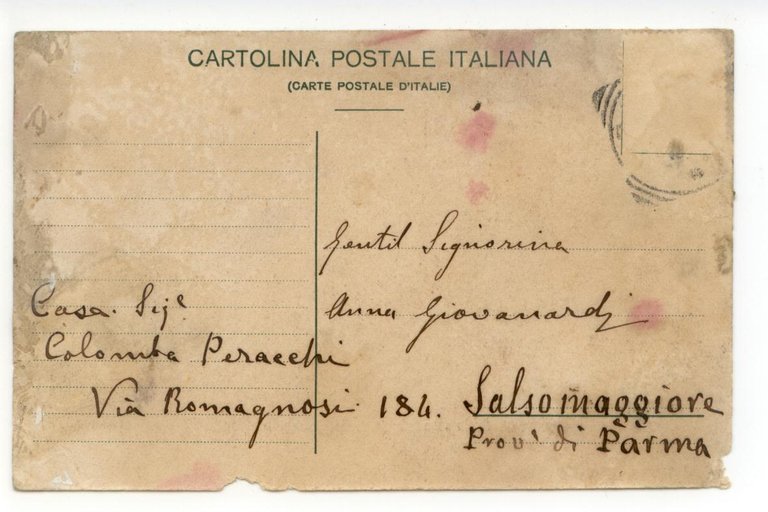 CARTOLINA POSTALE ITALIANA
(CARTE POSTALE D'ITALIE)
Gentil Signorina
Anna Giovanardi
Casa. Sigᵉ
Colomba Peracchi
Via Romagnosi 184. Salsomaggiore
Prov' di Parma